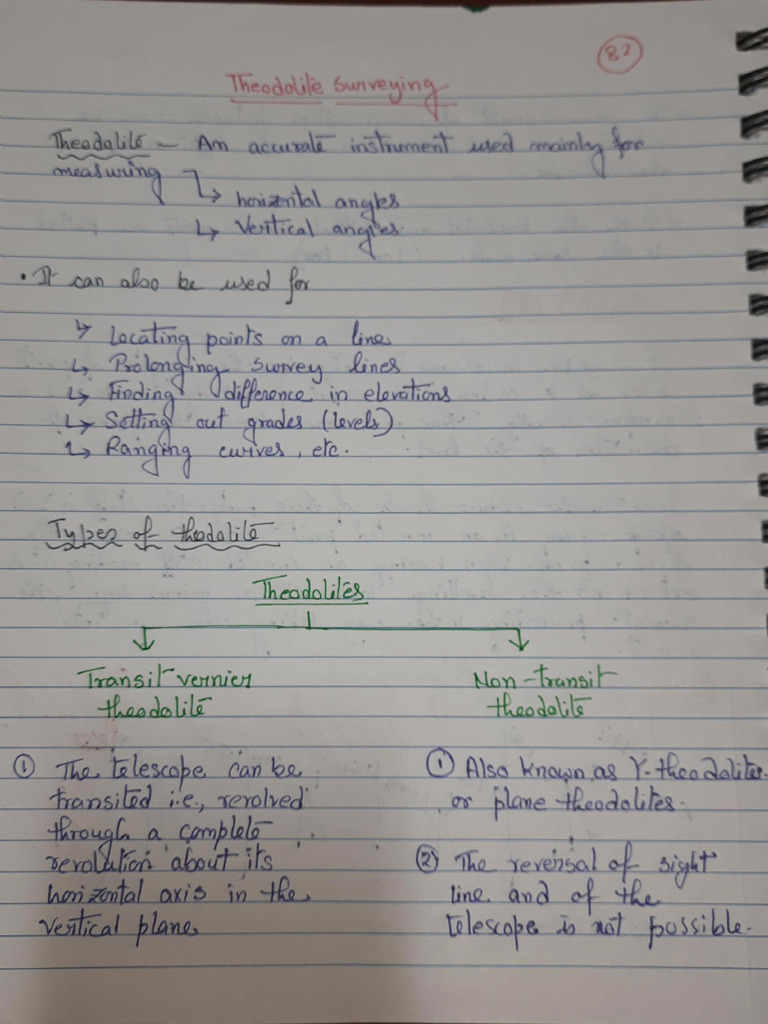 82
Theodolite surveying
Theodolite - An accurate instrument used mainly for
measuring
↳ horizontal angles
↳ Vertical angles.
• It can also be used for
↳ Locating points on a line
↳ Prolonging survey lines
↳ Finding difference in elevations
↳ Setting out grades (levels)
↳ Ranging curves, etc.
Types of theodolite
Theodolites
Transit vernier
theodolite
Non-transit
theodolite
① The telescope can be
transited i.e., revolved
through a complete
revolution about its
horizontal axis in the
vertical plane.
① Also known as Y-theodolites
or plane theodolites.
② The reversal of sight
line and of the
telescope is not possible.